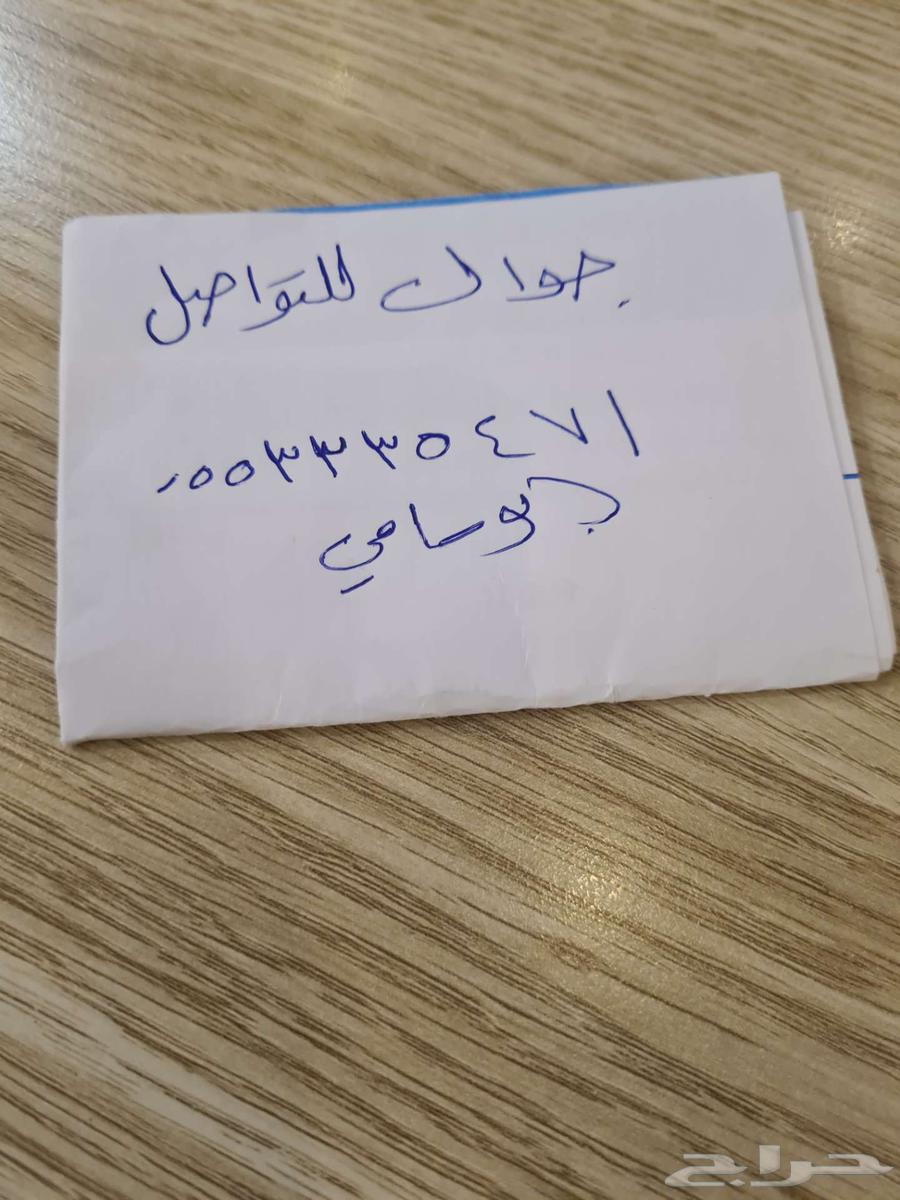 جوال للتواصل
٠٥٥٣٣٣٥٤٧١
ابو سامي
حراج